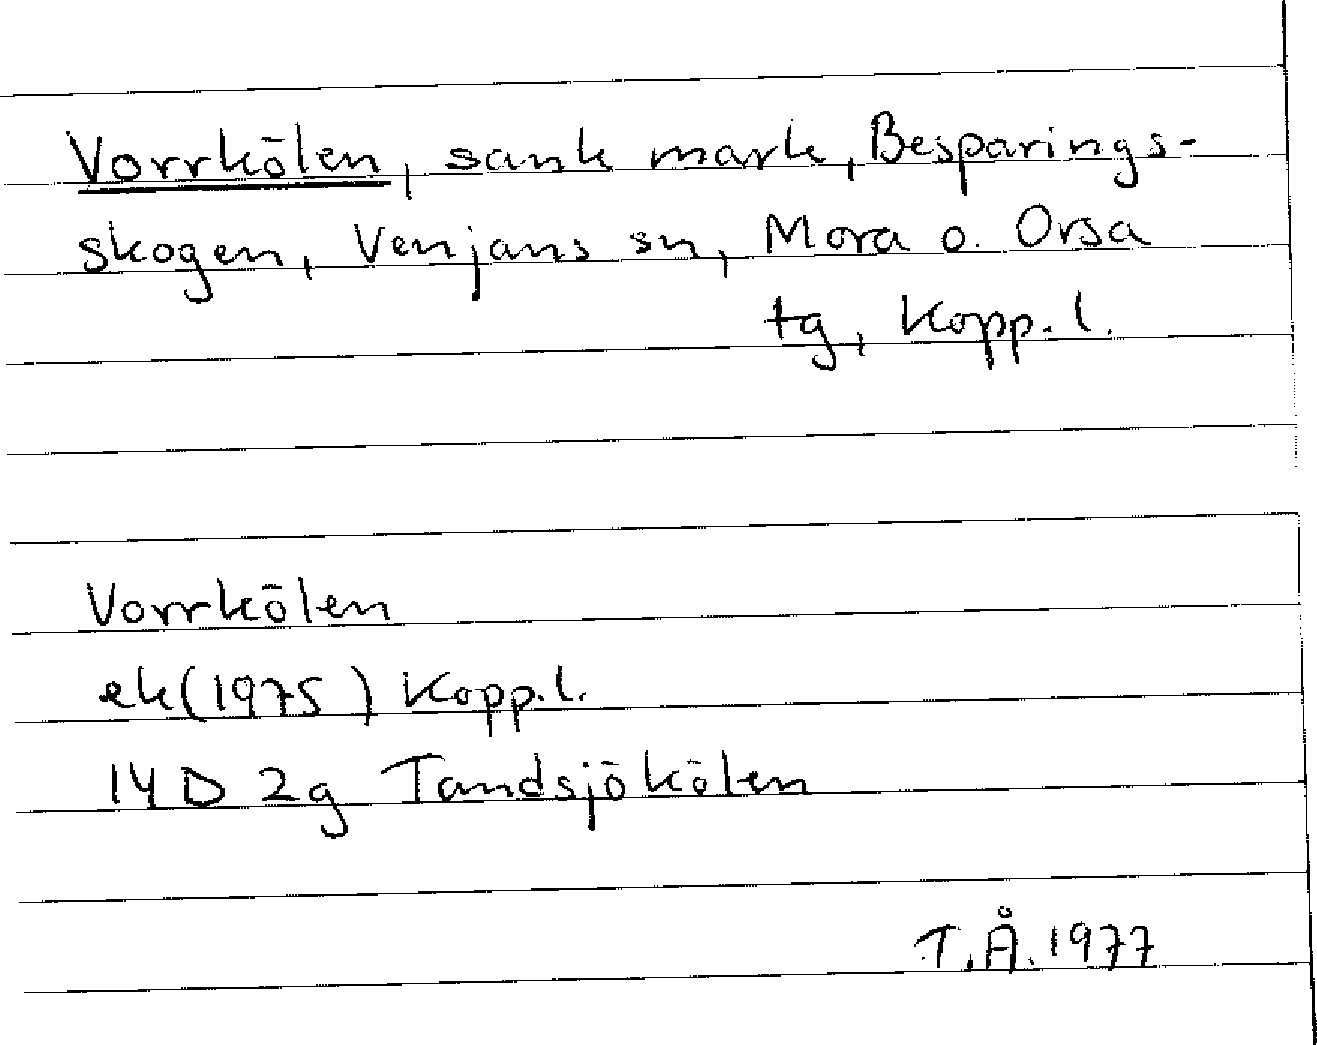 Vorrkölen, sank mark, Besparings-
skogen, Venjans sn, Mora o. Orsa
tg, Kopp. l.
Vorrkölen
ek (1975) Kopp. l.
14 D 2g Tandsjökölen
T.Å. 1977